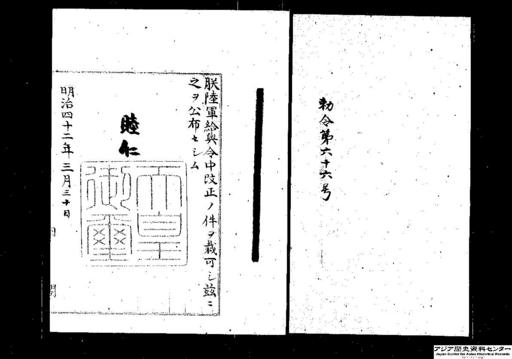 勅令第六十六号
朕陸軍給與令中改正ノ件ヲ裁可シ茲ニ
之ヲ公布セシム
睦仁
天皇
御璽
明治四十二年三月三十日
アジア歴史資料センター
Japan Center for Asian Historical Records